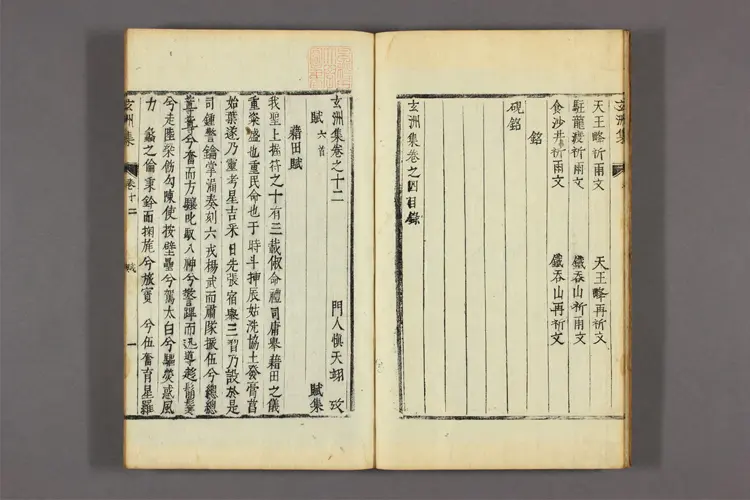 玄洲集
天王峰祈雨文 天王峰再祈文
駐龍渡祈雨文 鐵吞山祈雨文
食沙井祈雨文 鐵吞山再祈文
銘
硯銘
玄洲集卷之四目錄
玄洲集卷之十二
賦 六首 門人愼天翊 攷
藉田賦 賦集
我聖上握符之十有三載俶命禮司庸舉藉田之儀
重粢盛也重民命也于時斗押辰姑洗協土發膏菖
始葉遂乃重考星吉采日先張宿舉三習乃設於是
司鍾警鑰掌漏奏刻六戎楊武而肅隊振伍兮總總
奮而方驤叱馭八神兮警蹕而迅導
兮走陸梁飭勾陳使按壁壘兮駕太白兮驅熒惑風
力 之倫秉鈴而掬旄兮 兮伍奮育星羅
玄洲集 卷十二 賦 一